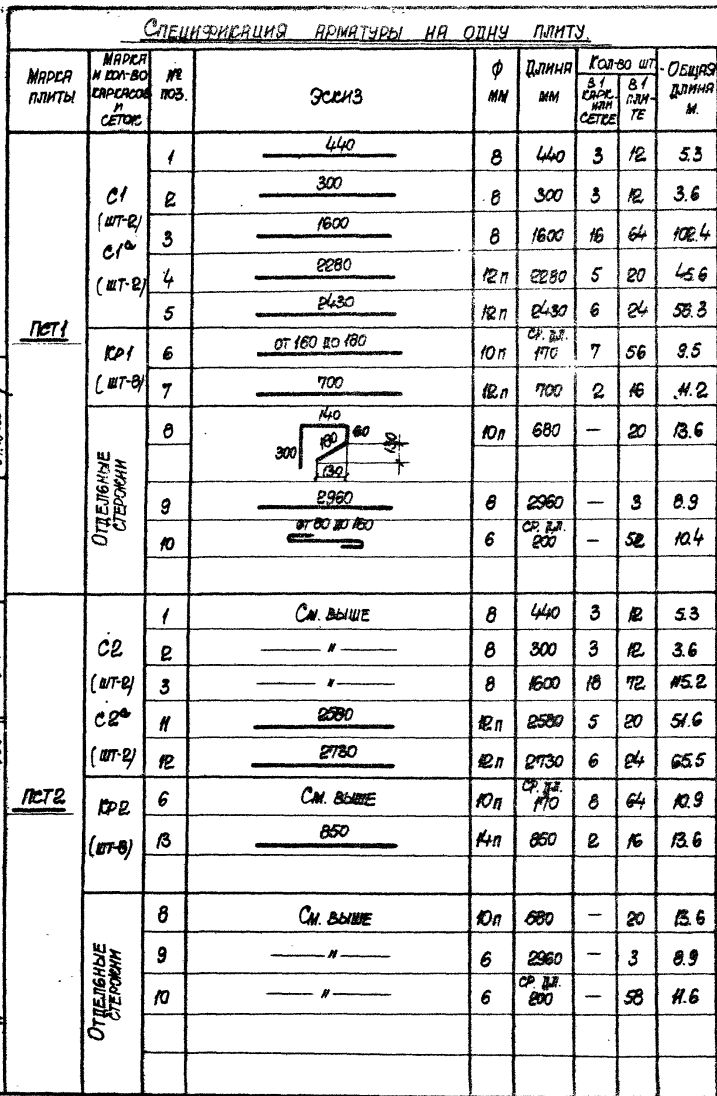 Спецификация арматуры на одну плиту.
Марка плиты | Марка и кол-во каркасов и сеток | № поз. | Эскиз | ф мм | Длина мм | Кол-во шт. в 1 карк. или сетке | в 1 плите | Общая длина м.
ПСТ1
С1 (шт-2) С1а (шт-2)
1 440 8 440 3 12 5.3
2 300 8 300 3 12 3.6
3 1600 8 1600 16 64 102.4
4 2280 12п 2280 5 20 45.6
5 2430 12п 2430 6 24 58.3
КР1 (шт-8)
6 от 160 до 180 10п ср. дл. 170 7 56 9.5
7 700 12п 700 2 16 11.2
Отдельные стержни
8 140 300 180 60 130 130 10п 680 — 20 13.6
9 2960 8 2960 — 3 8.9
10 от 80 до 160 6 ср. дл. 200 — 52 10.4
ПСТ2
С2 (шт-2) С2а (шт-2)
1 См. выше 8 440 3 12 5.3
2 — " — 8 300 3 12 3.6
3 — " — 8 1600 18 72 115.2
11 2580 12п 2580 5 20 51.6
12 2730 12п 2730 6 24 65.5
КР2 (шт-8)
6 См. выше 10п ср. дл. 170 8 64 10.9
13 850 14п 850 2 16 13.6
Отдельные стержни
8 См. выше 10п 680 — 20 13.6
9 — " — 6 2960 — 3 8.9
10 — " — 6 ср. дл. 200 — 58 11.6